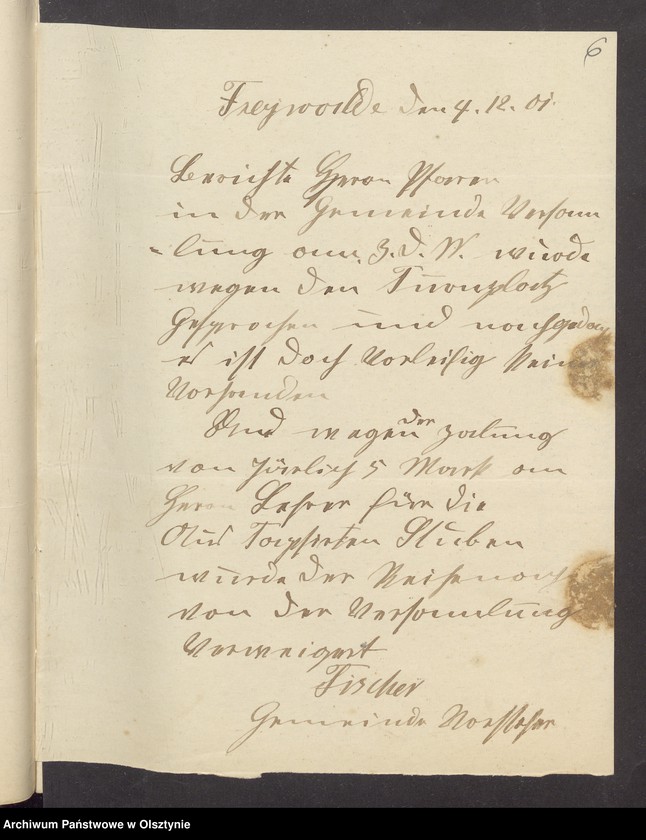 6
Freywalde den 4. 12. 01.
Berichte Herrn Pfarrer
in der Gemeinde Versam
-lung am 3. d. M. wurde
wegen den Turnplatz
Gesprochen und
es ist doch Vorleifig Kein
Vorhanden
Und wegen der zalung
von Järlich 5 Mark am
Herrn Lehrer für die
Aus Tapsirten Stuben
wurde der
von der Versammlung
Verweigert
Fischer
Gemeinde Vorsteher
Archiwum Państwowe w Olsztynie